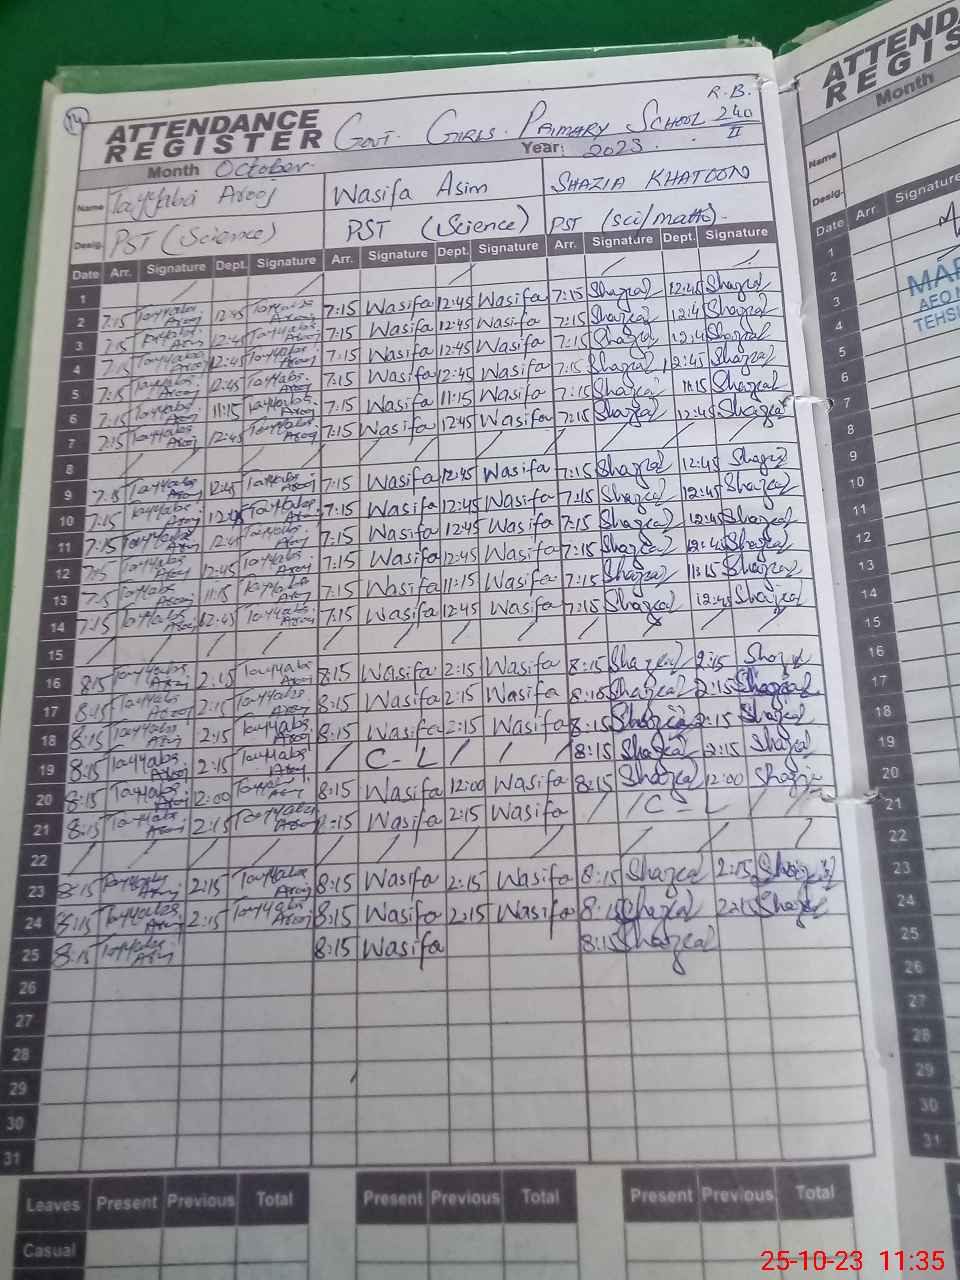 14
R.B.
ATTENDANCE REGISTER GOVT. GIRLS. PRIMARY SCHOOL 240/II
Month October. Year: 2023.
Name Tayyaba Arooj Wasifa Asim SHAZIA KHATOON
Desig. PST (Science) PST (Science) PST (sci/maths).
Date Arr. Signature Dept. Signature Arr. Signature Dept. Signature Arr. Signature Dept. Signature
1
2 7:15 Tayyaba Arooj 12:45 Tayyaba Arooj 7:15 Wasifa 12:45 Wasifa 7:15 Shazia 12:45 Shazia
3 7:15 Tayyaba Arooj 12:45 Tayyaba Arooj 7:15 Wasifa 12:45 Wasifa 7:15 Shazia 12:45 Shazia
4 7:15 Tayyaba Arooj 12:45 Tayyaba Arooj 7:15 Wasifa 12:45 Wasifa 7:15 Shazia 12:45 Shazia
5 7:15 Tayyaba Arooj 12:45 Tayyaba Arooj 7:15 Wasifa 12:45 Wasifa 7:15 Shazia 12:45 Shazia
6 7:15 Tayyaba Arooj 11:15 Tayyaba Arooj 7:15 Wasifa 11:15 Wasifa 7:15 Shazia 11:15 Shazia
7 7:15 Tayyaba Arooj 12:45 Tayyaba Arooj 7:15 Wasifa 12:45 Wasifa 7:15 Shazia 12:45 Shazia
8
9 7:15 Tayyaba Arooj 12:45 Tayyaba Arooj 7:15 Wasifa 12:45 Wasifa 7:15 Shazia 12:45 Shazia
10 7:15 Tayyaba Arooj 12:45 Tayyaba Arooj 7:15 Wasifa 12:45 Wasifa 7:15 Shazia 12:45 Shazia
11 7:15 Tayyaba Arooj 12:45 Tayyaba Arooj 7:15 Wasifa 12:45 Wasifa 7:15 Shazia 12:45 Shazia
12 7:15 Tayyaba Arooj 12:45 Tayyaba Arooj 7:15 Wasifa 12:45 Wasifa 7:15 Shazia 12:45 Shazia
13 7:15 Tayyaba Arooj 11:15 Tayyaba Arooj 7:15 Wasifa 11:15 Wasifa 7:15 Shazia 11:15 Shazia
14 7:15 Tayyaba Arooj 12:45 Tayyaba Arooj 7:15 Wasifa 12:45 Wasifa 7:15 Shazia 12:45 Shazia
15
16 8:15 Tayyaba Arooj 2:15 Tayyaba Arooj 8:15 Wasifa 2:15 Wasifa 8:15 Shazia 2:15 Shazia
17 8:15 Tayyaba Arooj 2:15 Tayyaba Arooj 8:15 Wasifa 2:15 Wasifa 8:15 Shazia 2:15 Shazia
18 8:15 Tayyaba Arooj 2:15 Tayyaba Arooj 8:15 Wasifa 2:15 Wasifa 8:15 Shazia 2:15 Shazia
19 8:15 Tayyaba Arooj 2:15 Tayyaba Arooj C-L 8:15 Shazia 2:15 Shazia
20 8:15 Tayyaba Arooj 12:00 Tayyaba Arooj 8:15 Wasifa 12:00 Wasifa 8:15 Shazia 12:00 Shazia
21 8:15 Tayyaba Arooj 2:15 Tayyaba Arooj Wasifa 2:15 Wasifa C-L
22
23 8:15 Tayyaba Arooj 2:15 Tayyaba Arooj 8:15 Wasifa 2:15 Wasifa 8:15 Shazia 2:15 Shazia
24 8:15 Tayyaba Arooj 2:15 Tayyaba Arooj 8:15 Wasifa 2:15 Wasifa 8:15 Shazia 2:15 Shazia
25 8:15 Tayyaba Arooj 8:15 Wasifa 8:15 Shazia
26
27
28
29
30
31
Leaves Present Previous Total Present Previous Total Present Previous Total
Casual
ATTEND
REGIS
Month
Name
Desig.
Date Arr. Signature
1
2
3
AEO
TEHSI
4
5
6
7
8
9
10
11
12
13
14
15
16
17
18
19
20
21
22
23
24
25
26
27
28
29
30
31
25-10-23 11:35